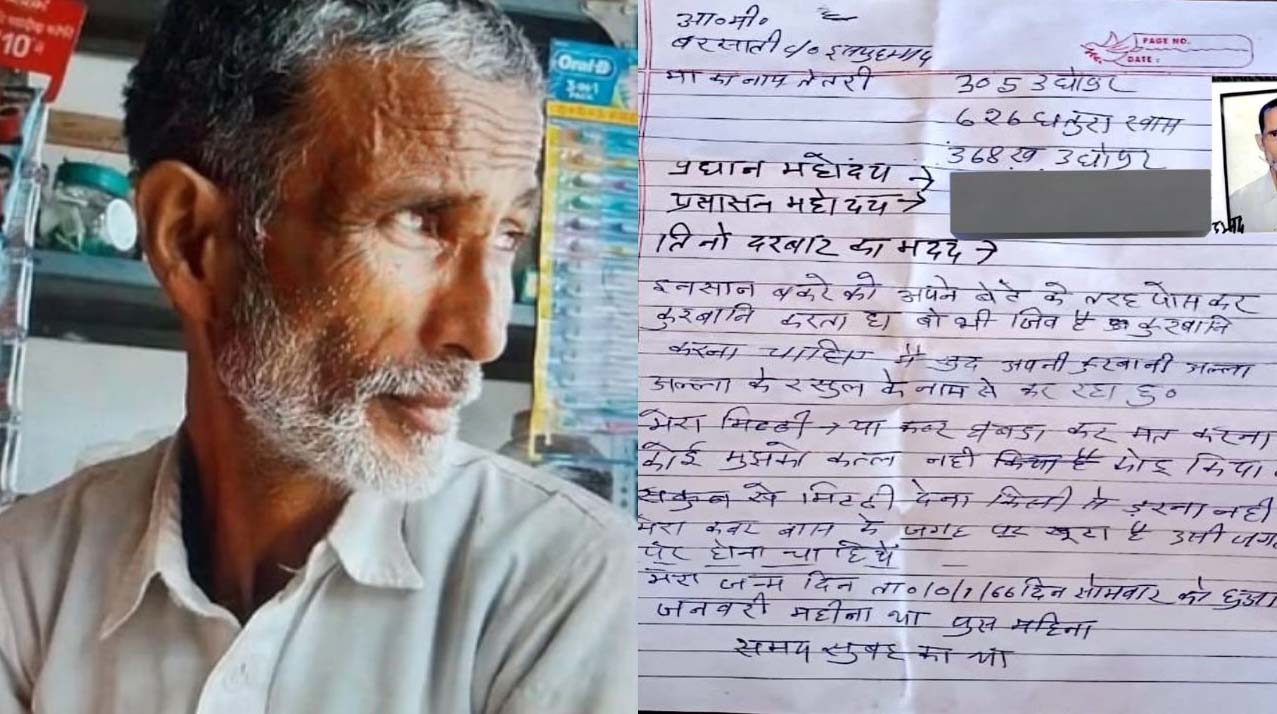 10
Oral-B
3-in-1
PACK
आ०मी०
बरसाती
PAGE NO.
DATE :
मा का नाम तेतरी
305 उधोपुर
626 धतुरा खाम
368ख उधोपुर
प्रधान महोदय →
प्रसासन महोदय →
तिनो दरबार का मदद →
इनसान बकरे को अपने बेटे के तरह पोस कर
कुरबानि करता है वो भी जिव है कुरबानि
करना चाहिए मै खुद अपनी कुरबानी अल्ला
अल्ला के रसुल के नाम से कर रहा हु०
मेरा मिटटी → या कबर घबडा कर मत करना
कोई मुझको कत्ल नही किया है
सकुन से मिटटी देना किसी से डरना नही
मेरा कबर बास के जगह पर खुटा है उसी जगह
पर होना चाहिये
मेरा जन्म दिन ता० 10/1/66 दिन सोमवार को हुआ
जनवरी महीना था पुस महिना
समय सुबह का था